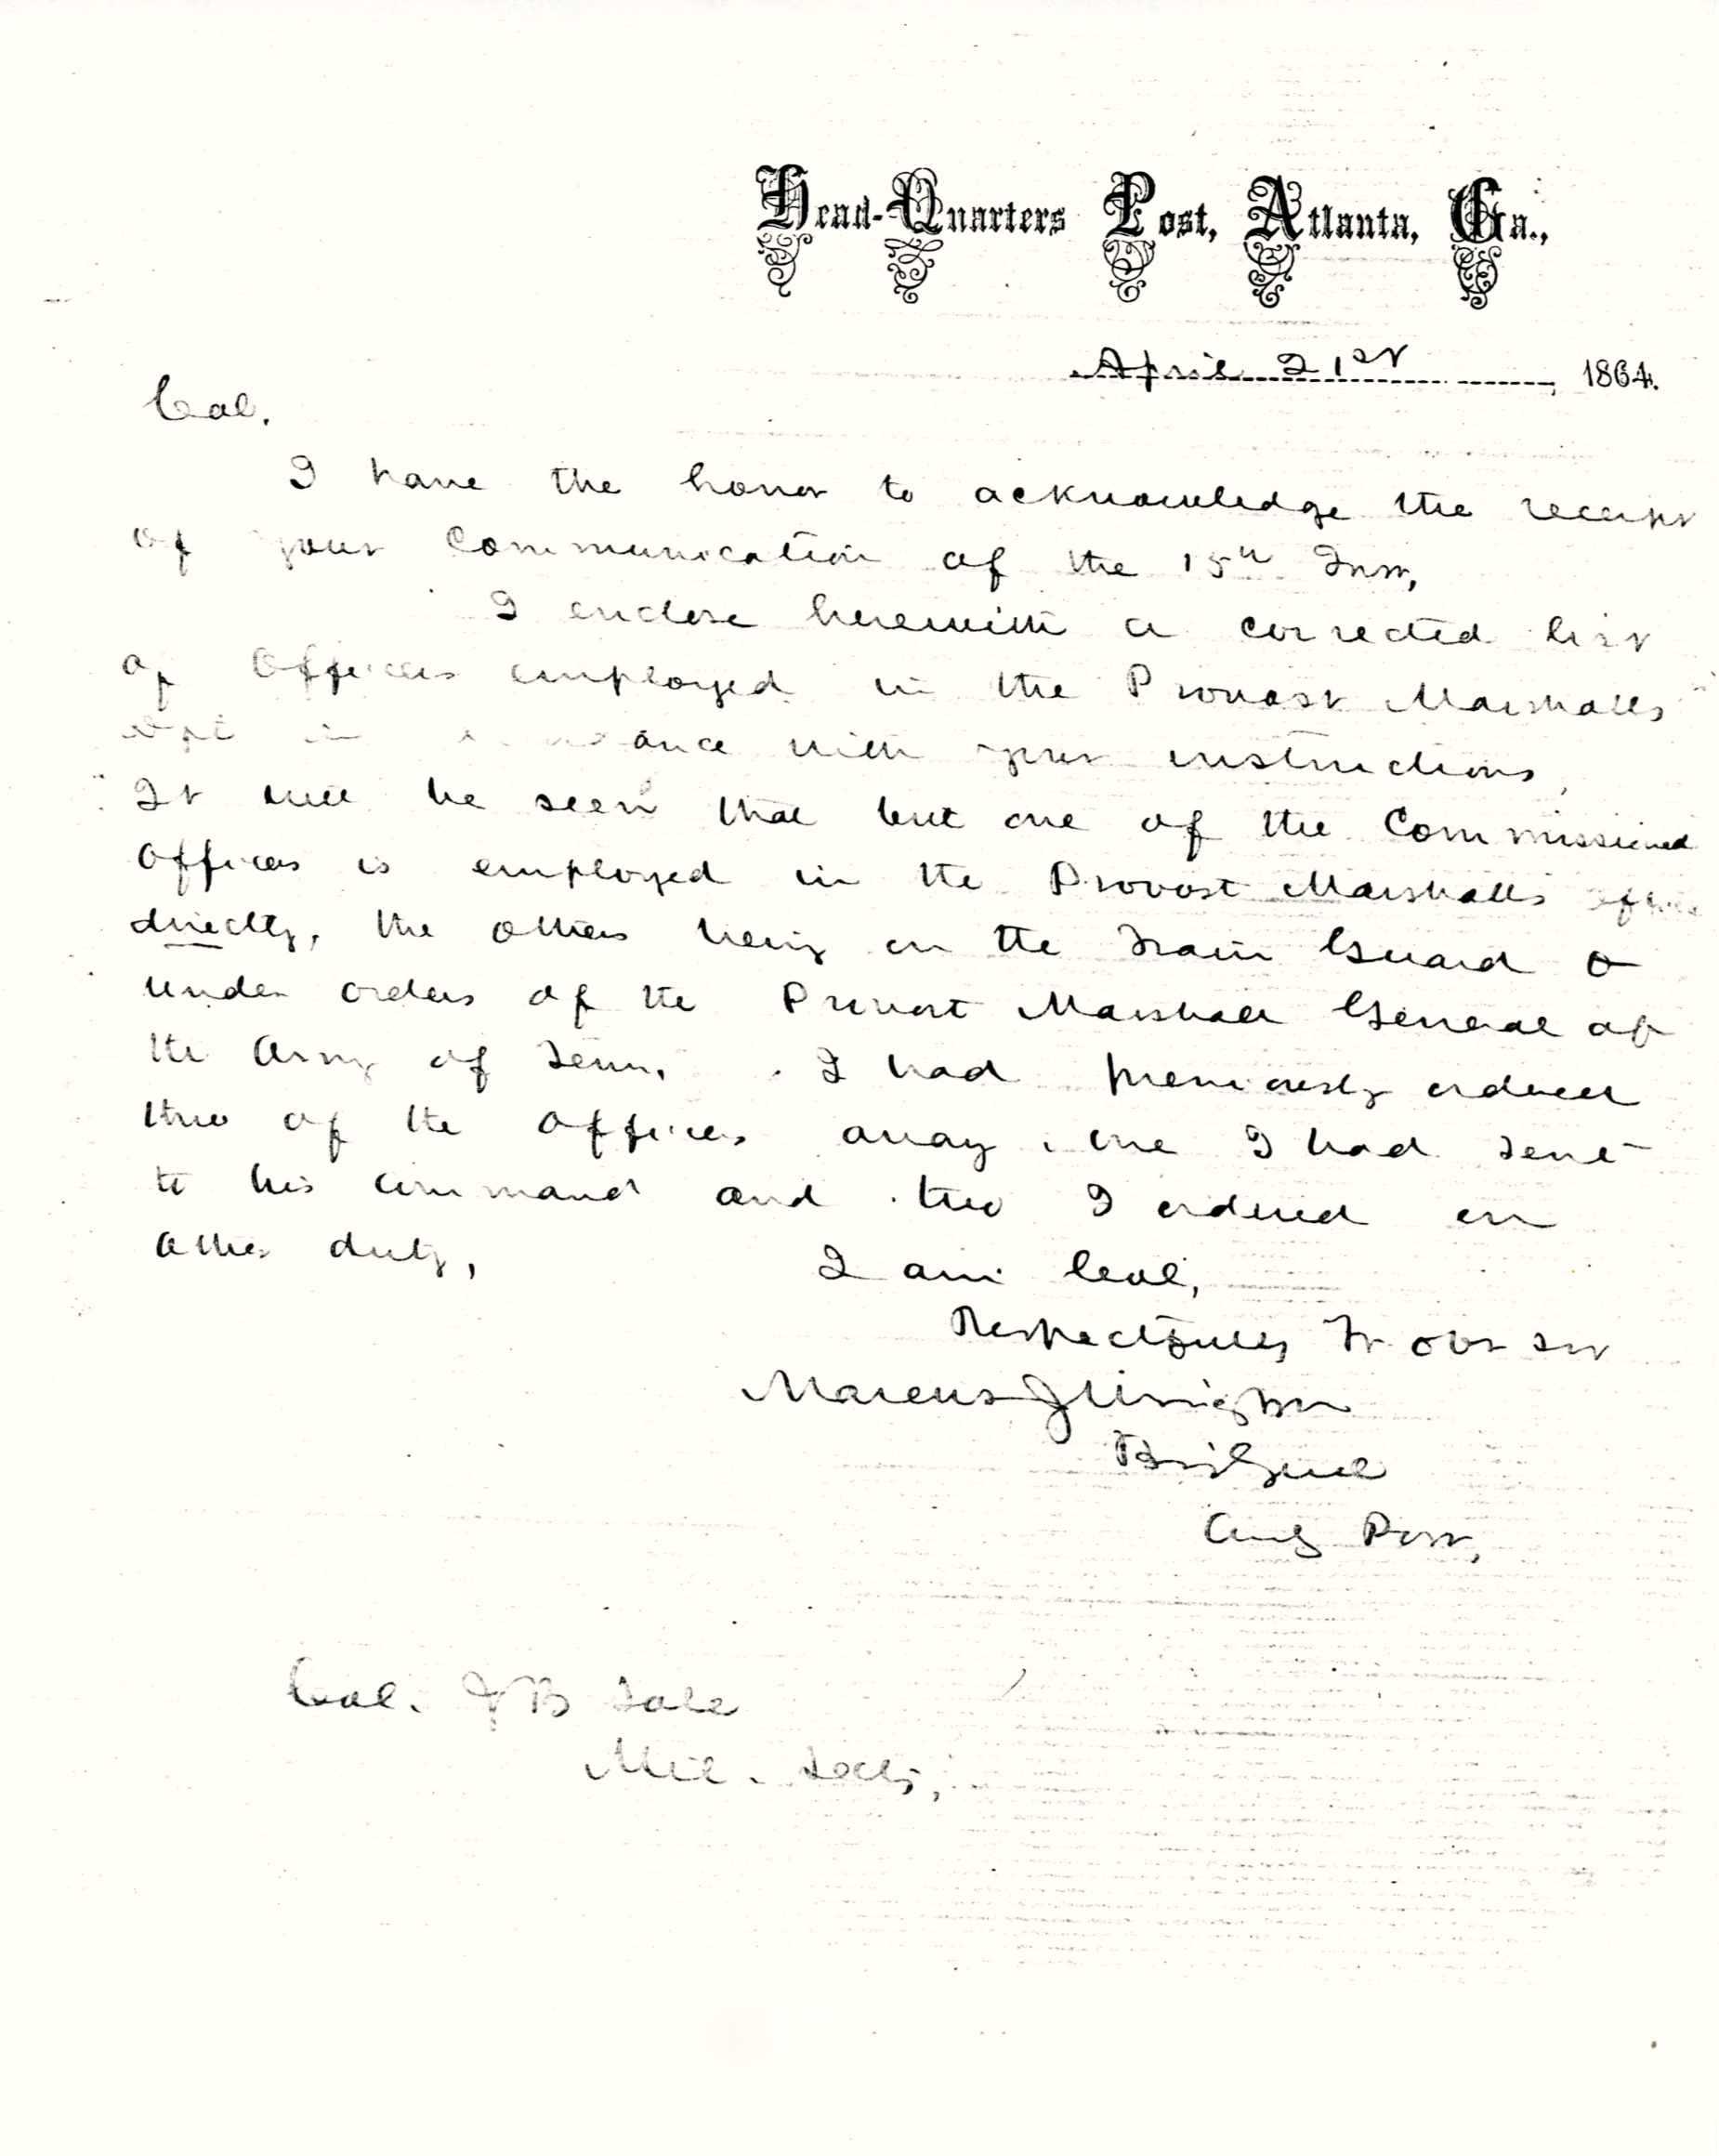 Head-Quarters Post, Atlanta, Ga.,
April 21st, 1864.
Col.
I have the honor to acknowledge the receipt
of your Communication of the 15th Inst,
I enclose herewith a corrected list
of Officers employed in the Provost Marshalls
Dpt in with your instructions,
It will be seen that but one of the Commissioned
Officers is employed in the Provost Marshalls office
directly, the others being on the Train Guard &
under orders of the Provost Marshall General of
the Army of Tenn. I had previously ordered
three of the Officers away, one I had sent
to his command and two I ordered on
other duty,
I am Col,
Respectfully Yr obt svt
Marcus J Wright
Brig Genl
Comdg Post,
Col. J B Sale
Mil. Secty,